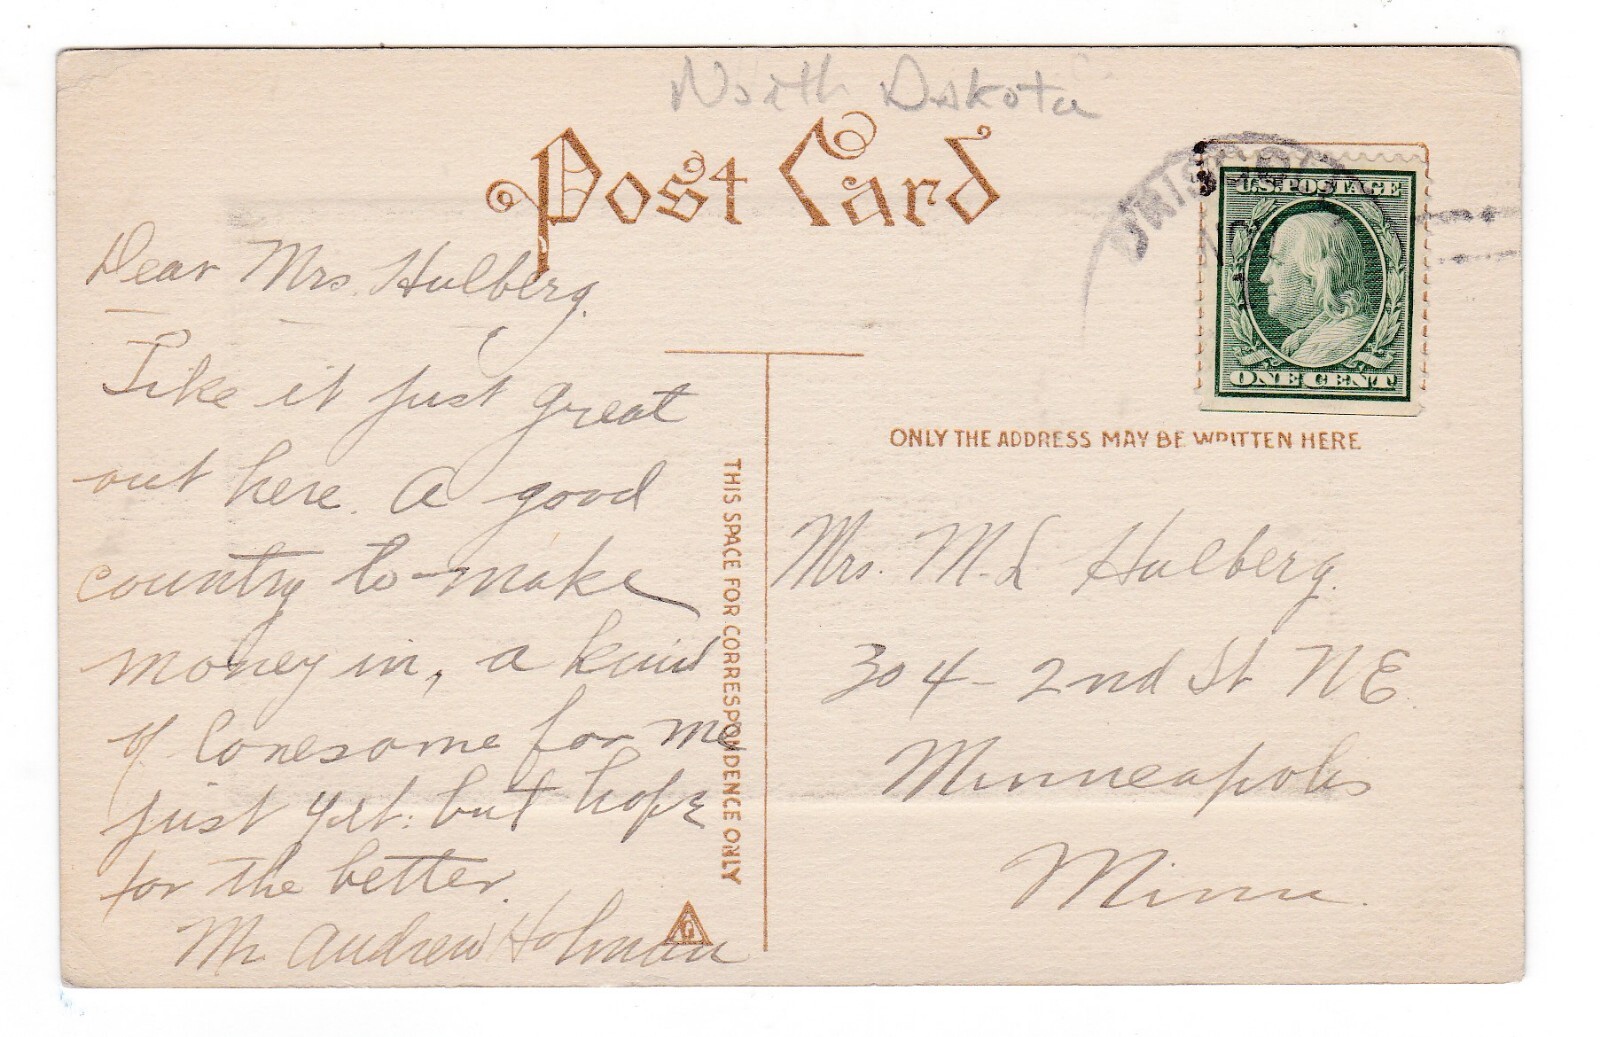 North Dakota
Post Card
U.S. POSTAGE
ONE CENT
Dear Mrs. Hulberg.
Like it just great
out here. A good
country to make
money in, a kind
of lonesome for me
just yet: but hope
for the better.
Mr Andrew Holman
THIS SPACE FOR CORRESPONDENCE ONLY
ONLY THE ADDRESS MAY BE WRITTEN HERE
Mrs. M. L Hulberg.
304 - 2nd St NE
Minneapolis
Minn.
G